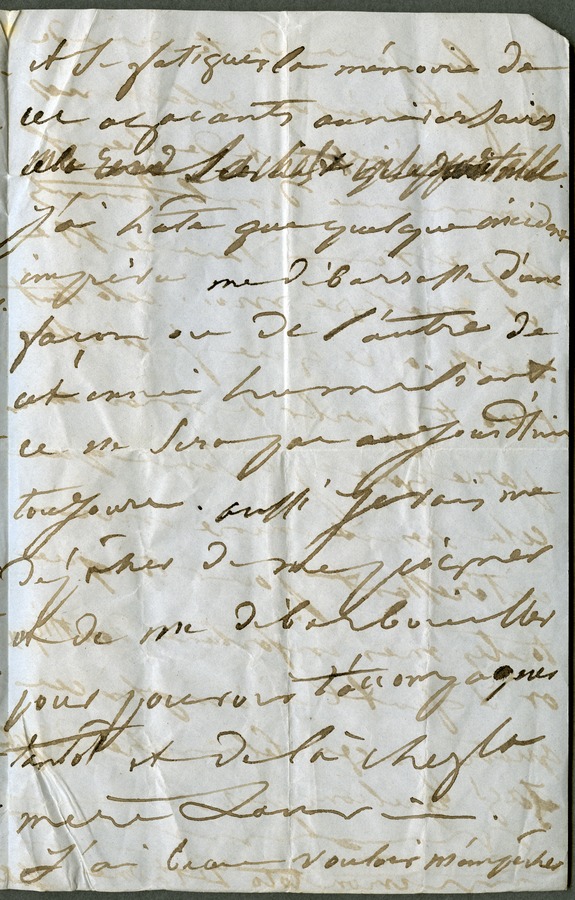 et de fatiguer la mémoire de
ces agaçants anniversaires
J'ai hâte que quelque incident
imprévu me débarrasse d'une
façon ou de l'autre de
cet ennui humiliant.
ce ne sera pas aujourd'hui
toujours. aussi je vais me
dépêcher de me peigner
et de me débarbouiller
pour pouvoir t'accompagner
tantôt et de là chez la
mère Lanvin.
J'ai beau vouloir m'empêcher